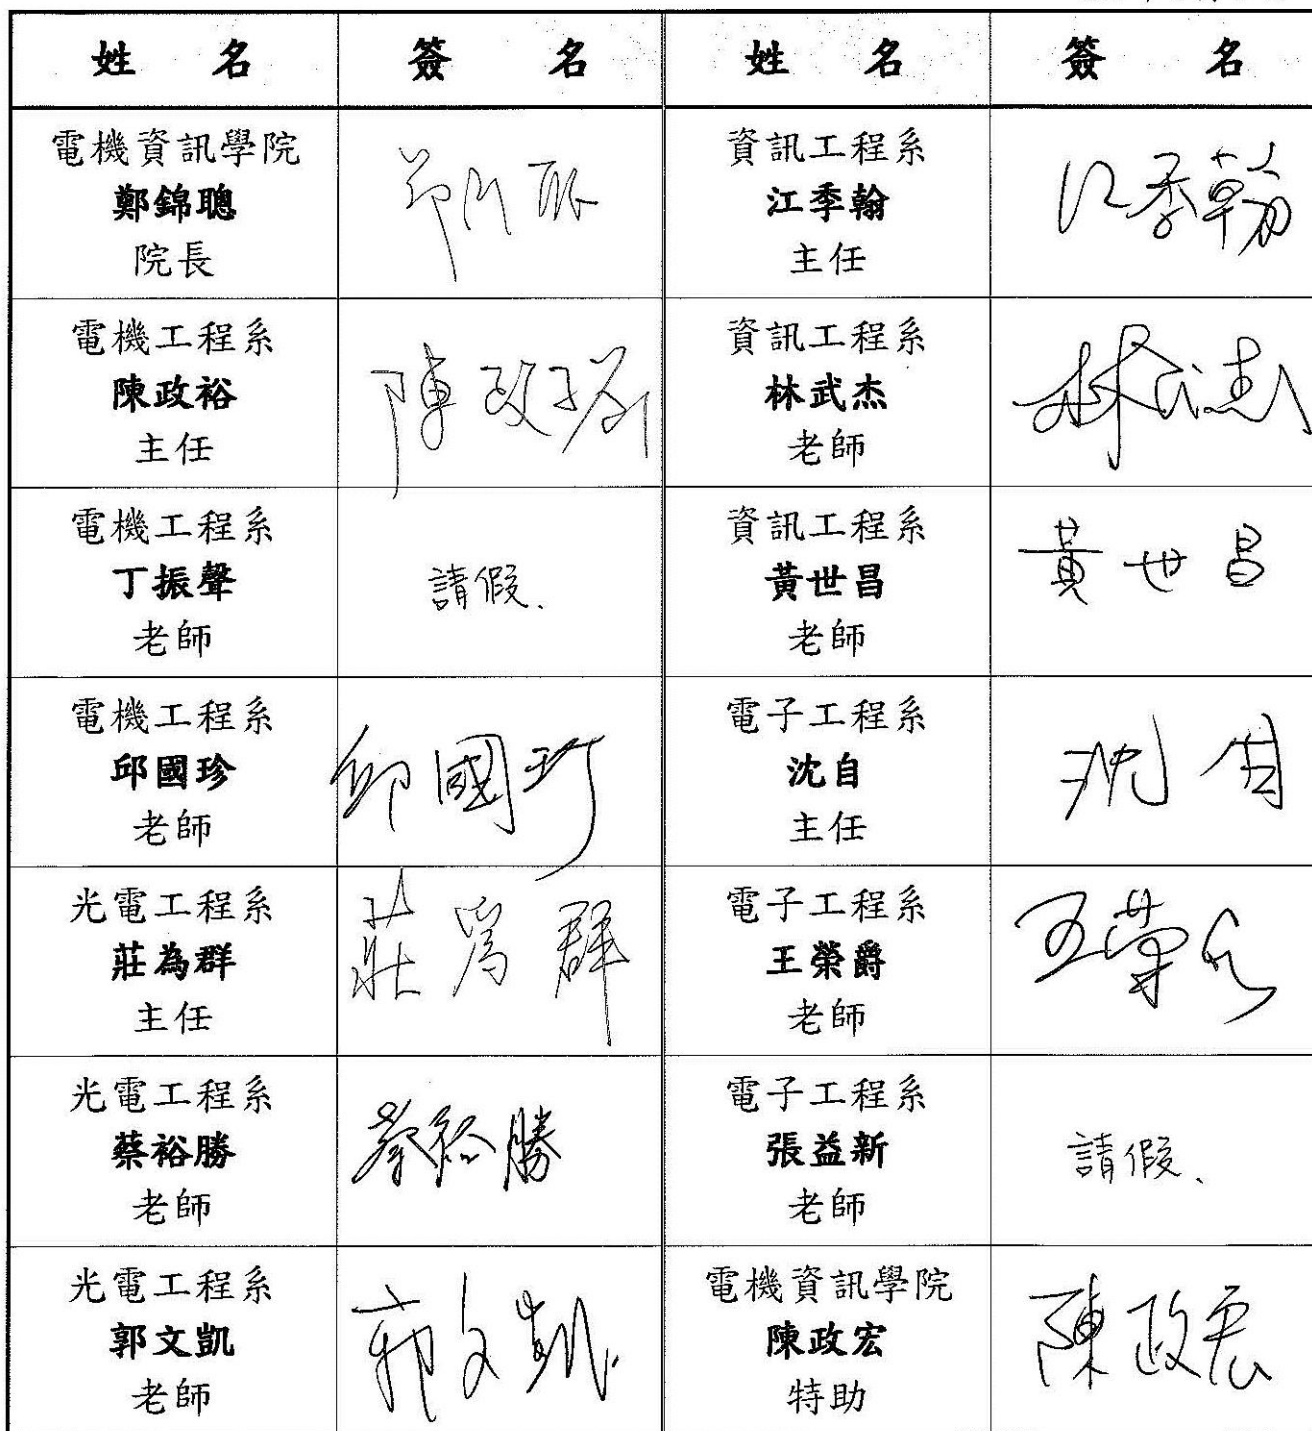 姓名 簽名 姓名 簽名
電機資訊學院
鄭錦聰
院長
資訊工程系
江季翰
主任
江季翰
電機工程系
陳政裕
主任
陳政裕
資訊工程系
林武杰
老師
林武杰
電機工程系
丁振聲
老師
請假、
資訊工程系
黃世昌
老師
黃世昌
電機工程系
邱國珍
老師
邱國珍
電子工程系
沈自
主任
沈自
光電工程系
莊為群
主任
莊為群
電子工程系
王榮爵
老師
光電工程系
蔡裕勝
老師
蔡裕勝
電子工程系
張益新
老師
請假、
光電工程系
郭文凱
老師
郭文凱
電機資訊學院
陳政宏
特助
陳政宏